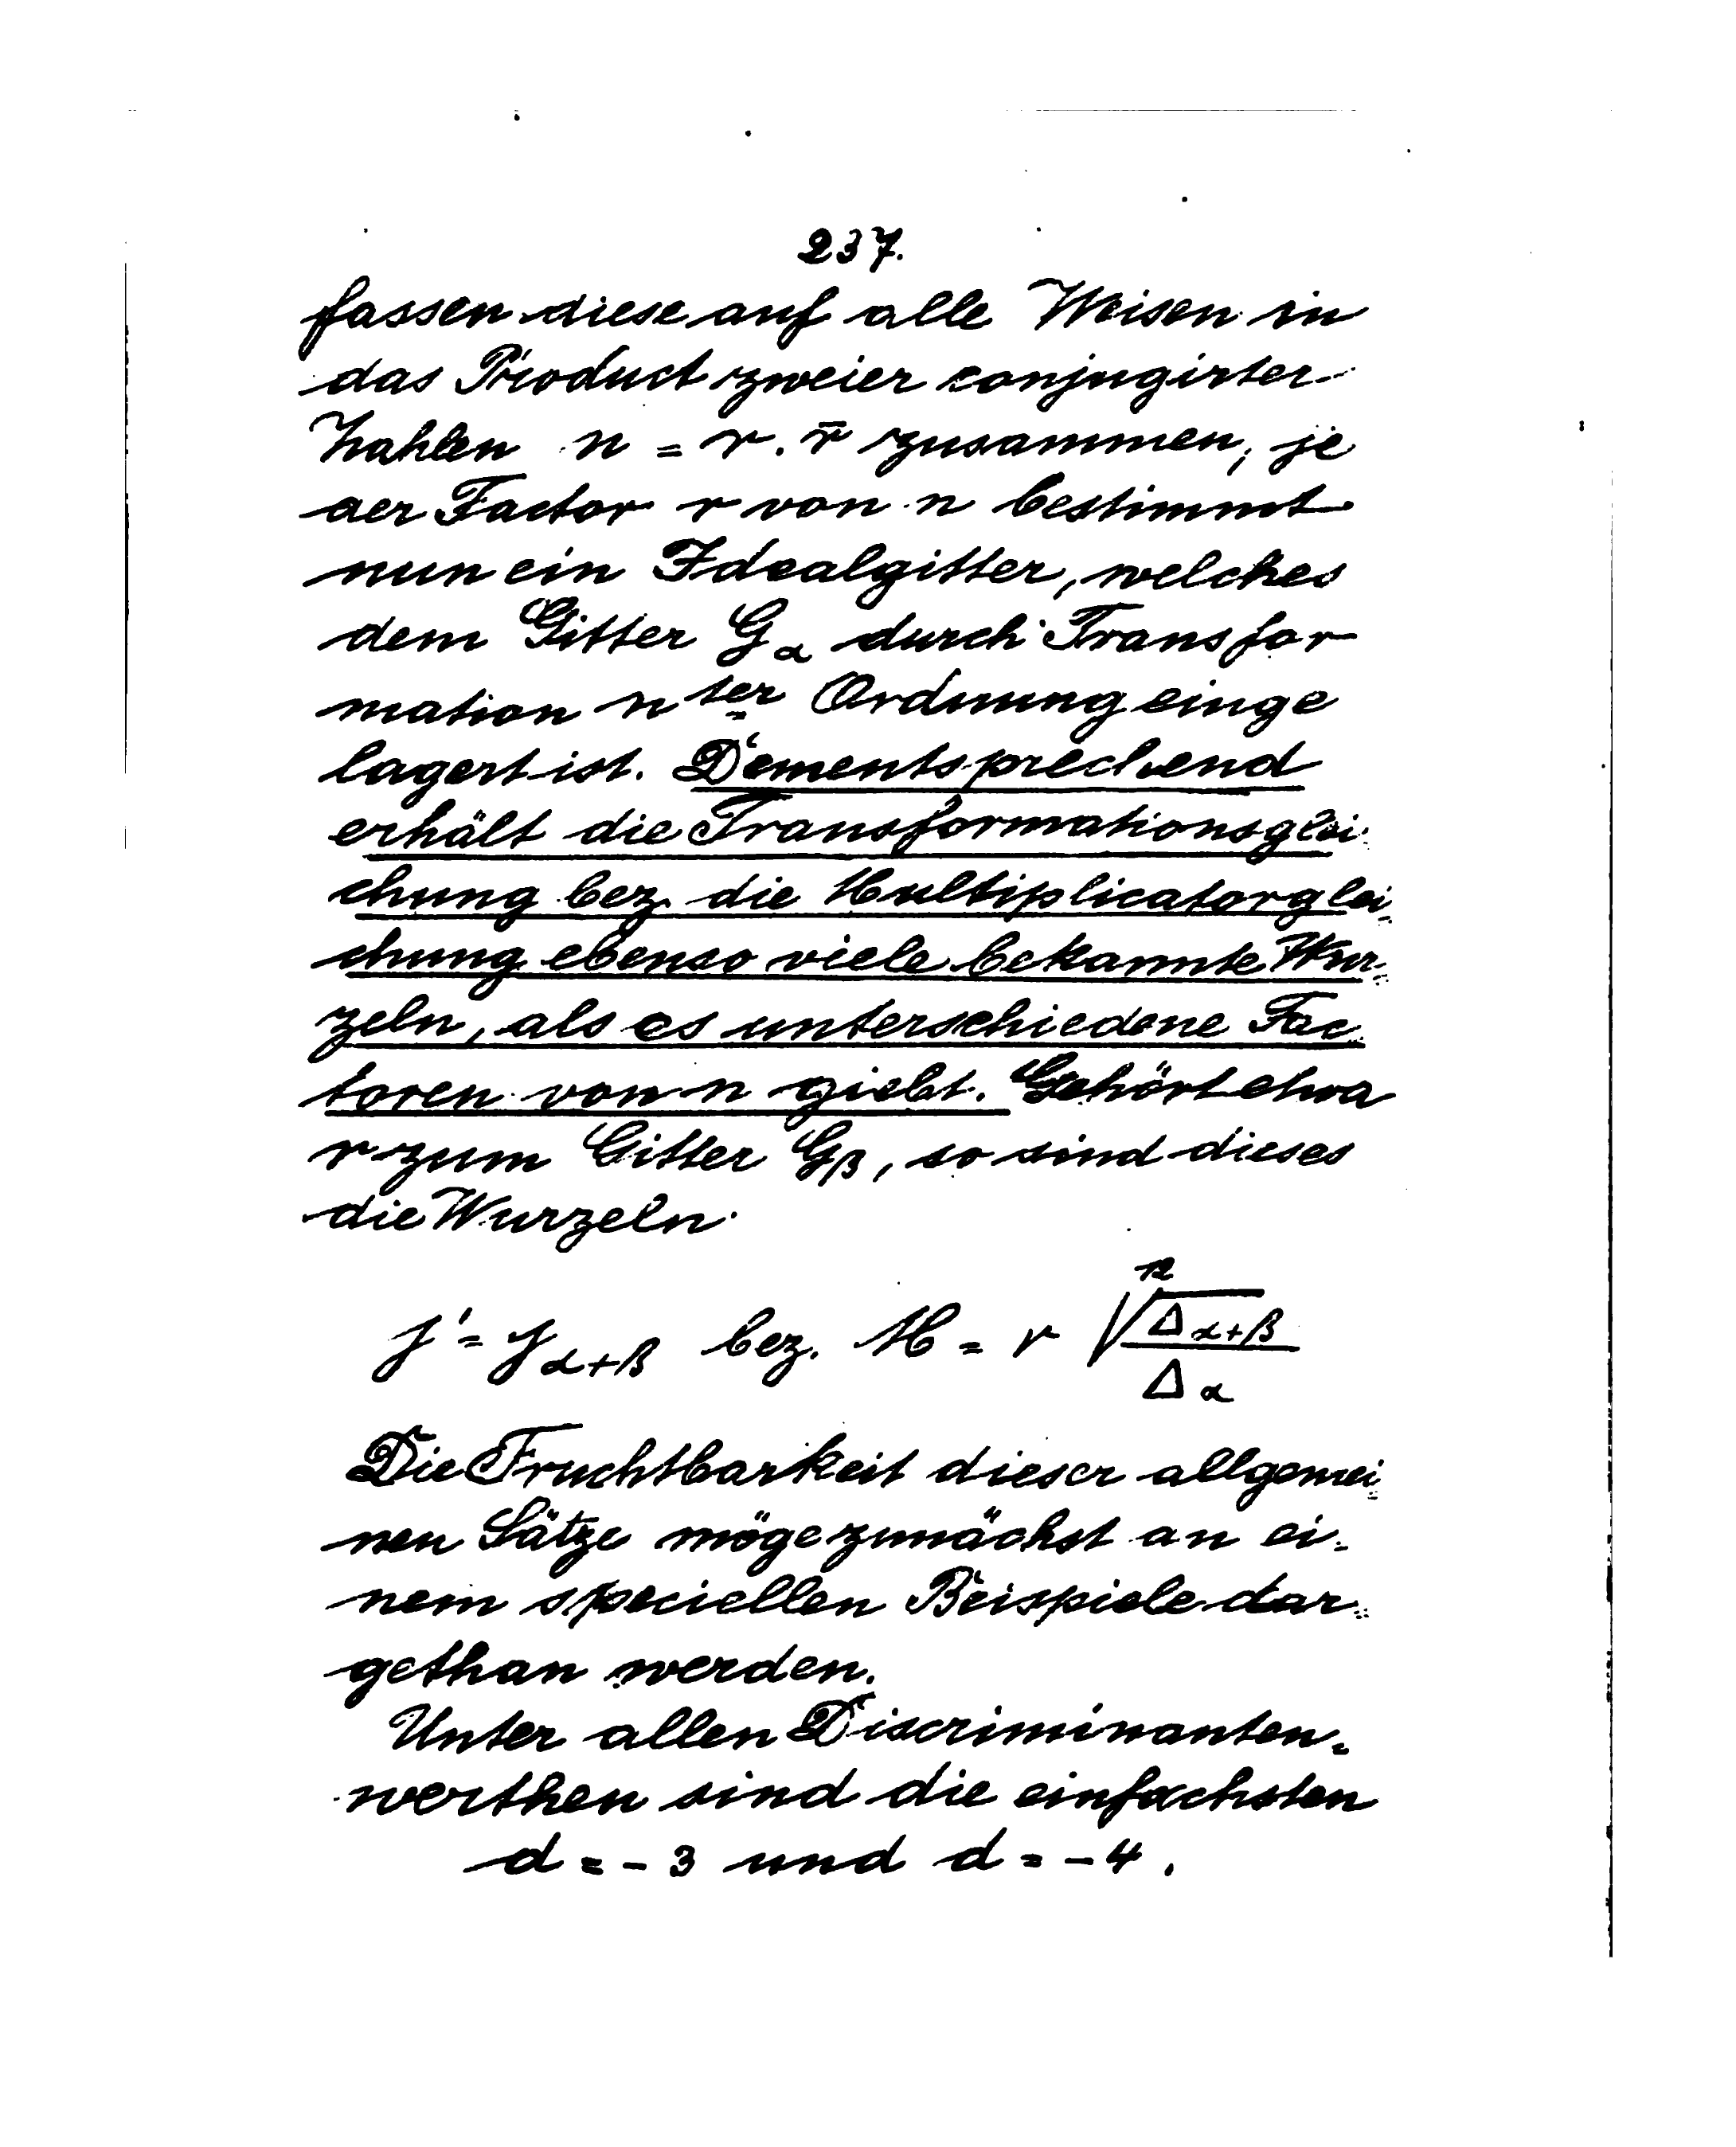 237.
fassen diese auf alle Weisen in
das Product zweier conjugirter
Zahlen n = r . r̄ zusammen, je
der Factor r von n bestimmt
nun ein Idealgitter, welches
dem Gitter G_α durch Transfor
mation n ter Ordnung einge
lagert ist. Dementsprechend
erhält die Transformationsglei-
chung bez. die Multiplicatorglei=
chung ebenso viele bekannte Wur=
zeln, als es unterschiedene Fac
toren von n giebt. Gehört etwa
r zum Gitter G_β, so sind dieses
die Wurzeln
j' = j_{α+β} bez. M = r \sqrt[12]{\frac{Δ_{α+β}}{Δ_α}}
Die Fruchtbarkeit dieser allgemei=
nen Sätze möge zunächst an ei=
nem speciellen Beispiele dar=
gethan werden.
Unter allen Discriminanten=
werthen sind die einfachsten
d = - 3 und d = - 4.